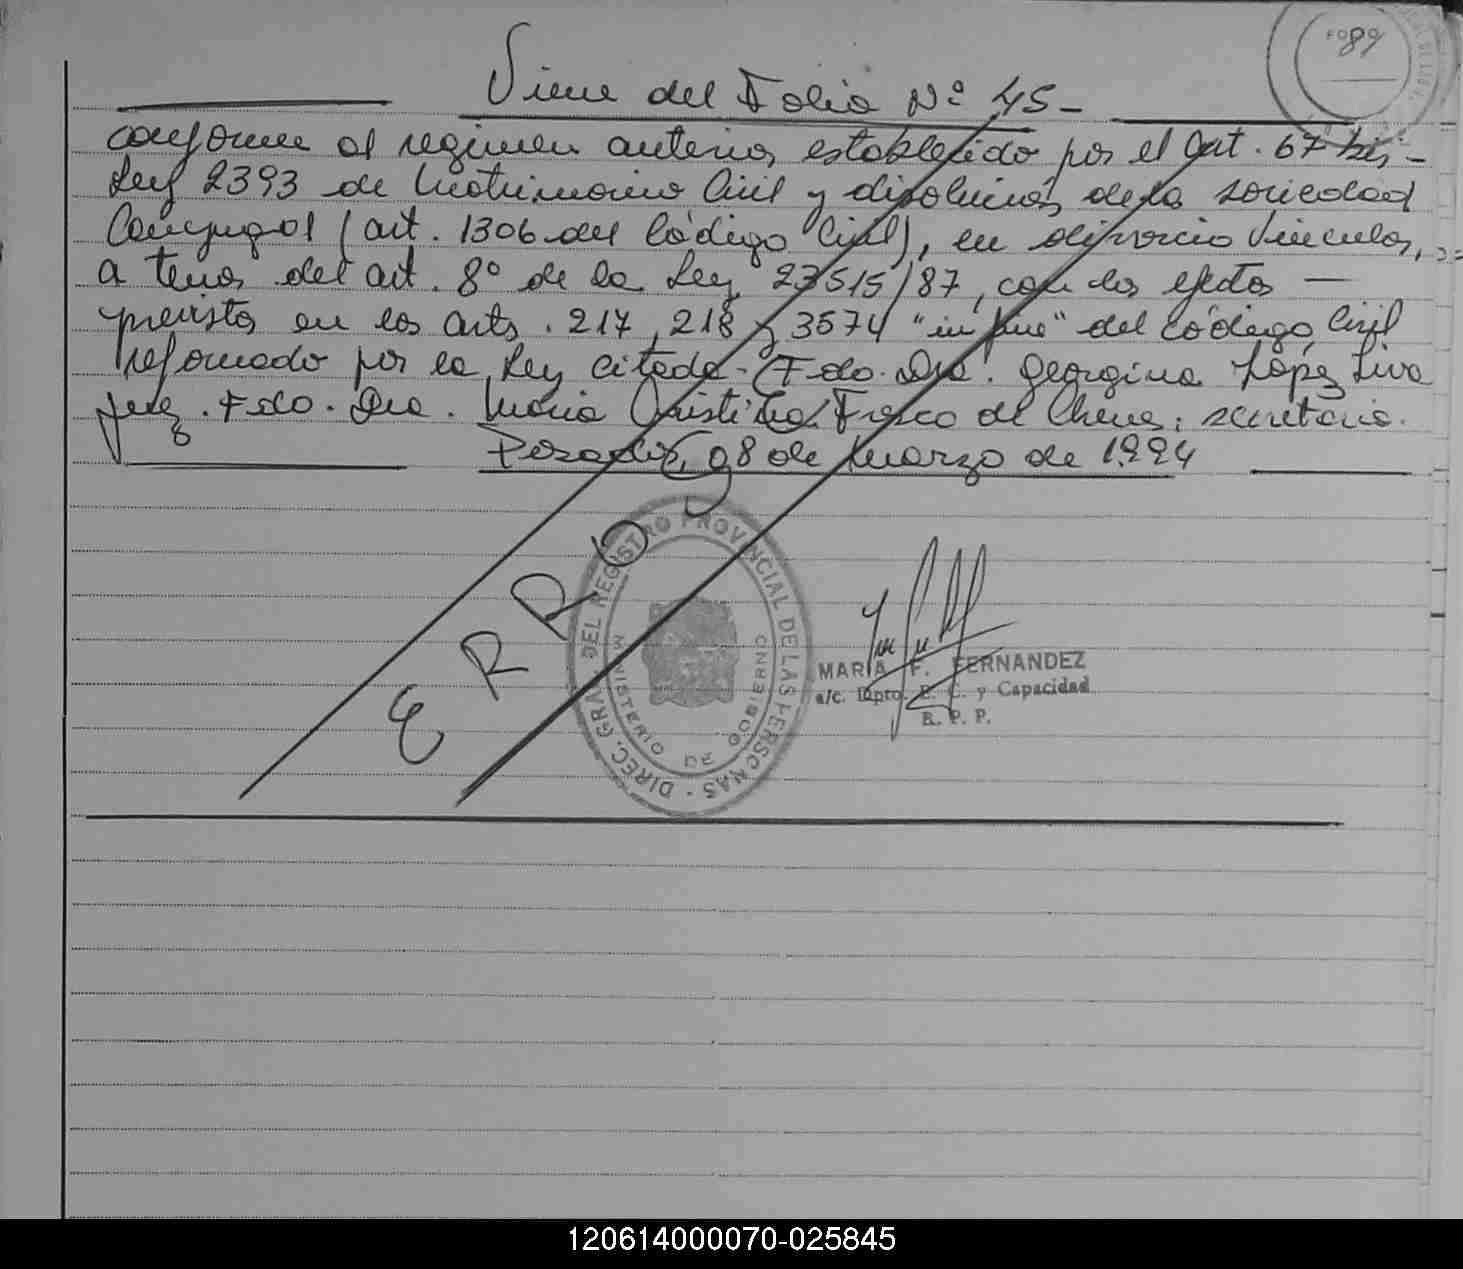 Fº 89
Viene del Folio Nº 45-
conforme al regimen anterior establecido por el Art. 67 bis-
Ley 2393 de Matrimonio Civil y disolución de la sociedad
Conyugal (art. 1306 del Código Civil), en divorcio Vincular,
a tenor del art. 8º de la Ley 23515/87, con los efectos —
previstos en los arts. 217, 218 y 3574 "in fine" del Código Civil
reformado por la Ley citada- Fdo. Dra. Georgina López Liva
Juez. Fdo. Dra. María Cristina Fresco de Chena; secretaria.
Posadas, 08 de Marzo de 1994
ERROR
DIREC. GRAL. DEL REGISTRO PROVINCIAL DE LAS PERSONAS
MINISTERIO DE GOBIERNO
MARIA F. FERNANDEZ
a/c. Dpto. E. C. y Capacidad
R. P. P.
120614000070-025845